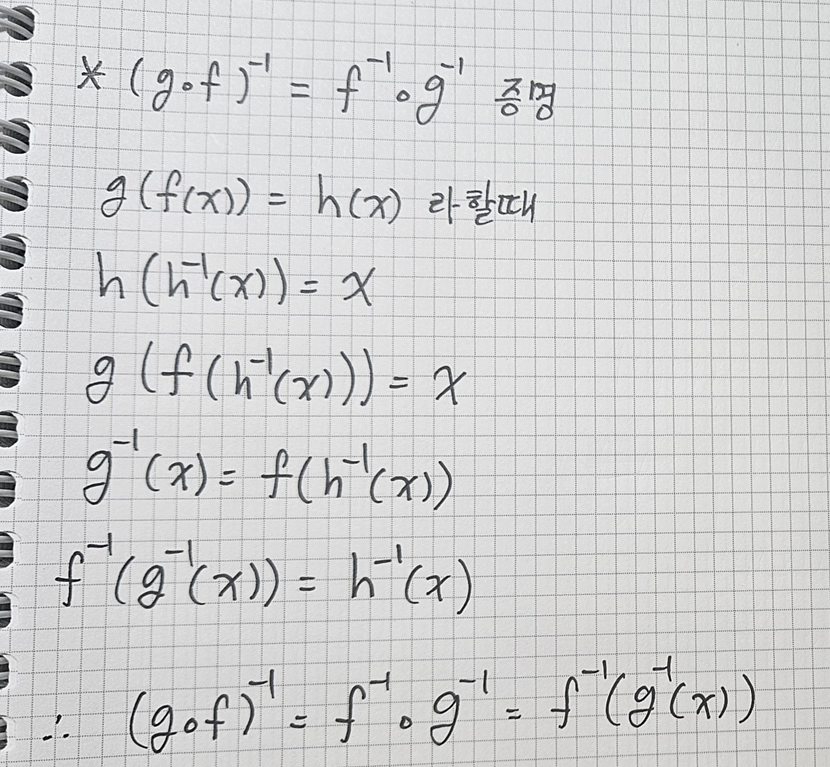 * (g∘f)⁻¹ = f⁻¹∘g⁻¹ 증명
g(f(x)) = h(x) 라할때
h(h⁻¹(x)) = x
g(f(h⁻¹(x))) = x
g⁻¹(x) = f(h⁻¹(x))
f⁻¹(g⁻¹(x)) = h⁻¹(x)
∴ (g∘f)⁻¹ = f⁻¹∘g⁻¹ = f⁻¹(g⁻¹(x))